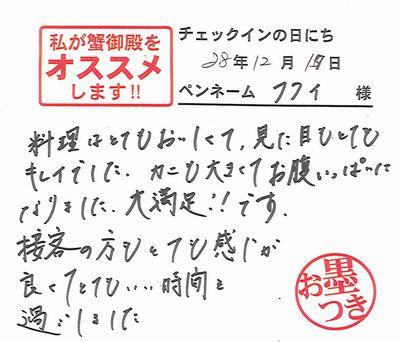 私が蟹御殿を
オススメ
します!!
チェックインの日にち
28年12月19日
ペンネーム フクイ 様
料理はとてもおいしくて、見た目もとても
キレイでした。カニも大きくてお腹いっぱいに
なりました。大満足!!です。
接客の方もとても感じが
良くてとてもいい時間を
過ごしました
お墨つき